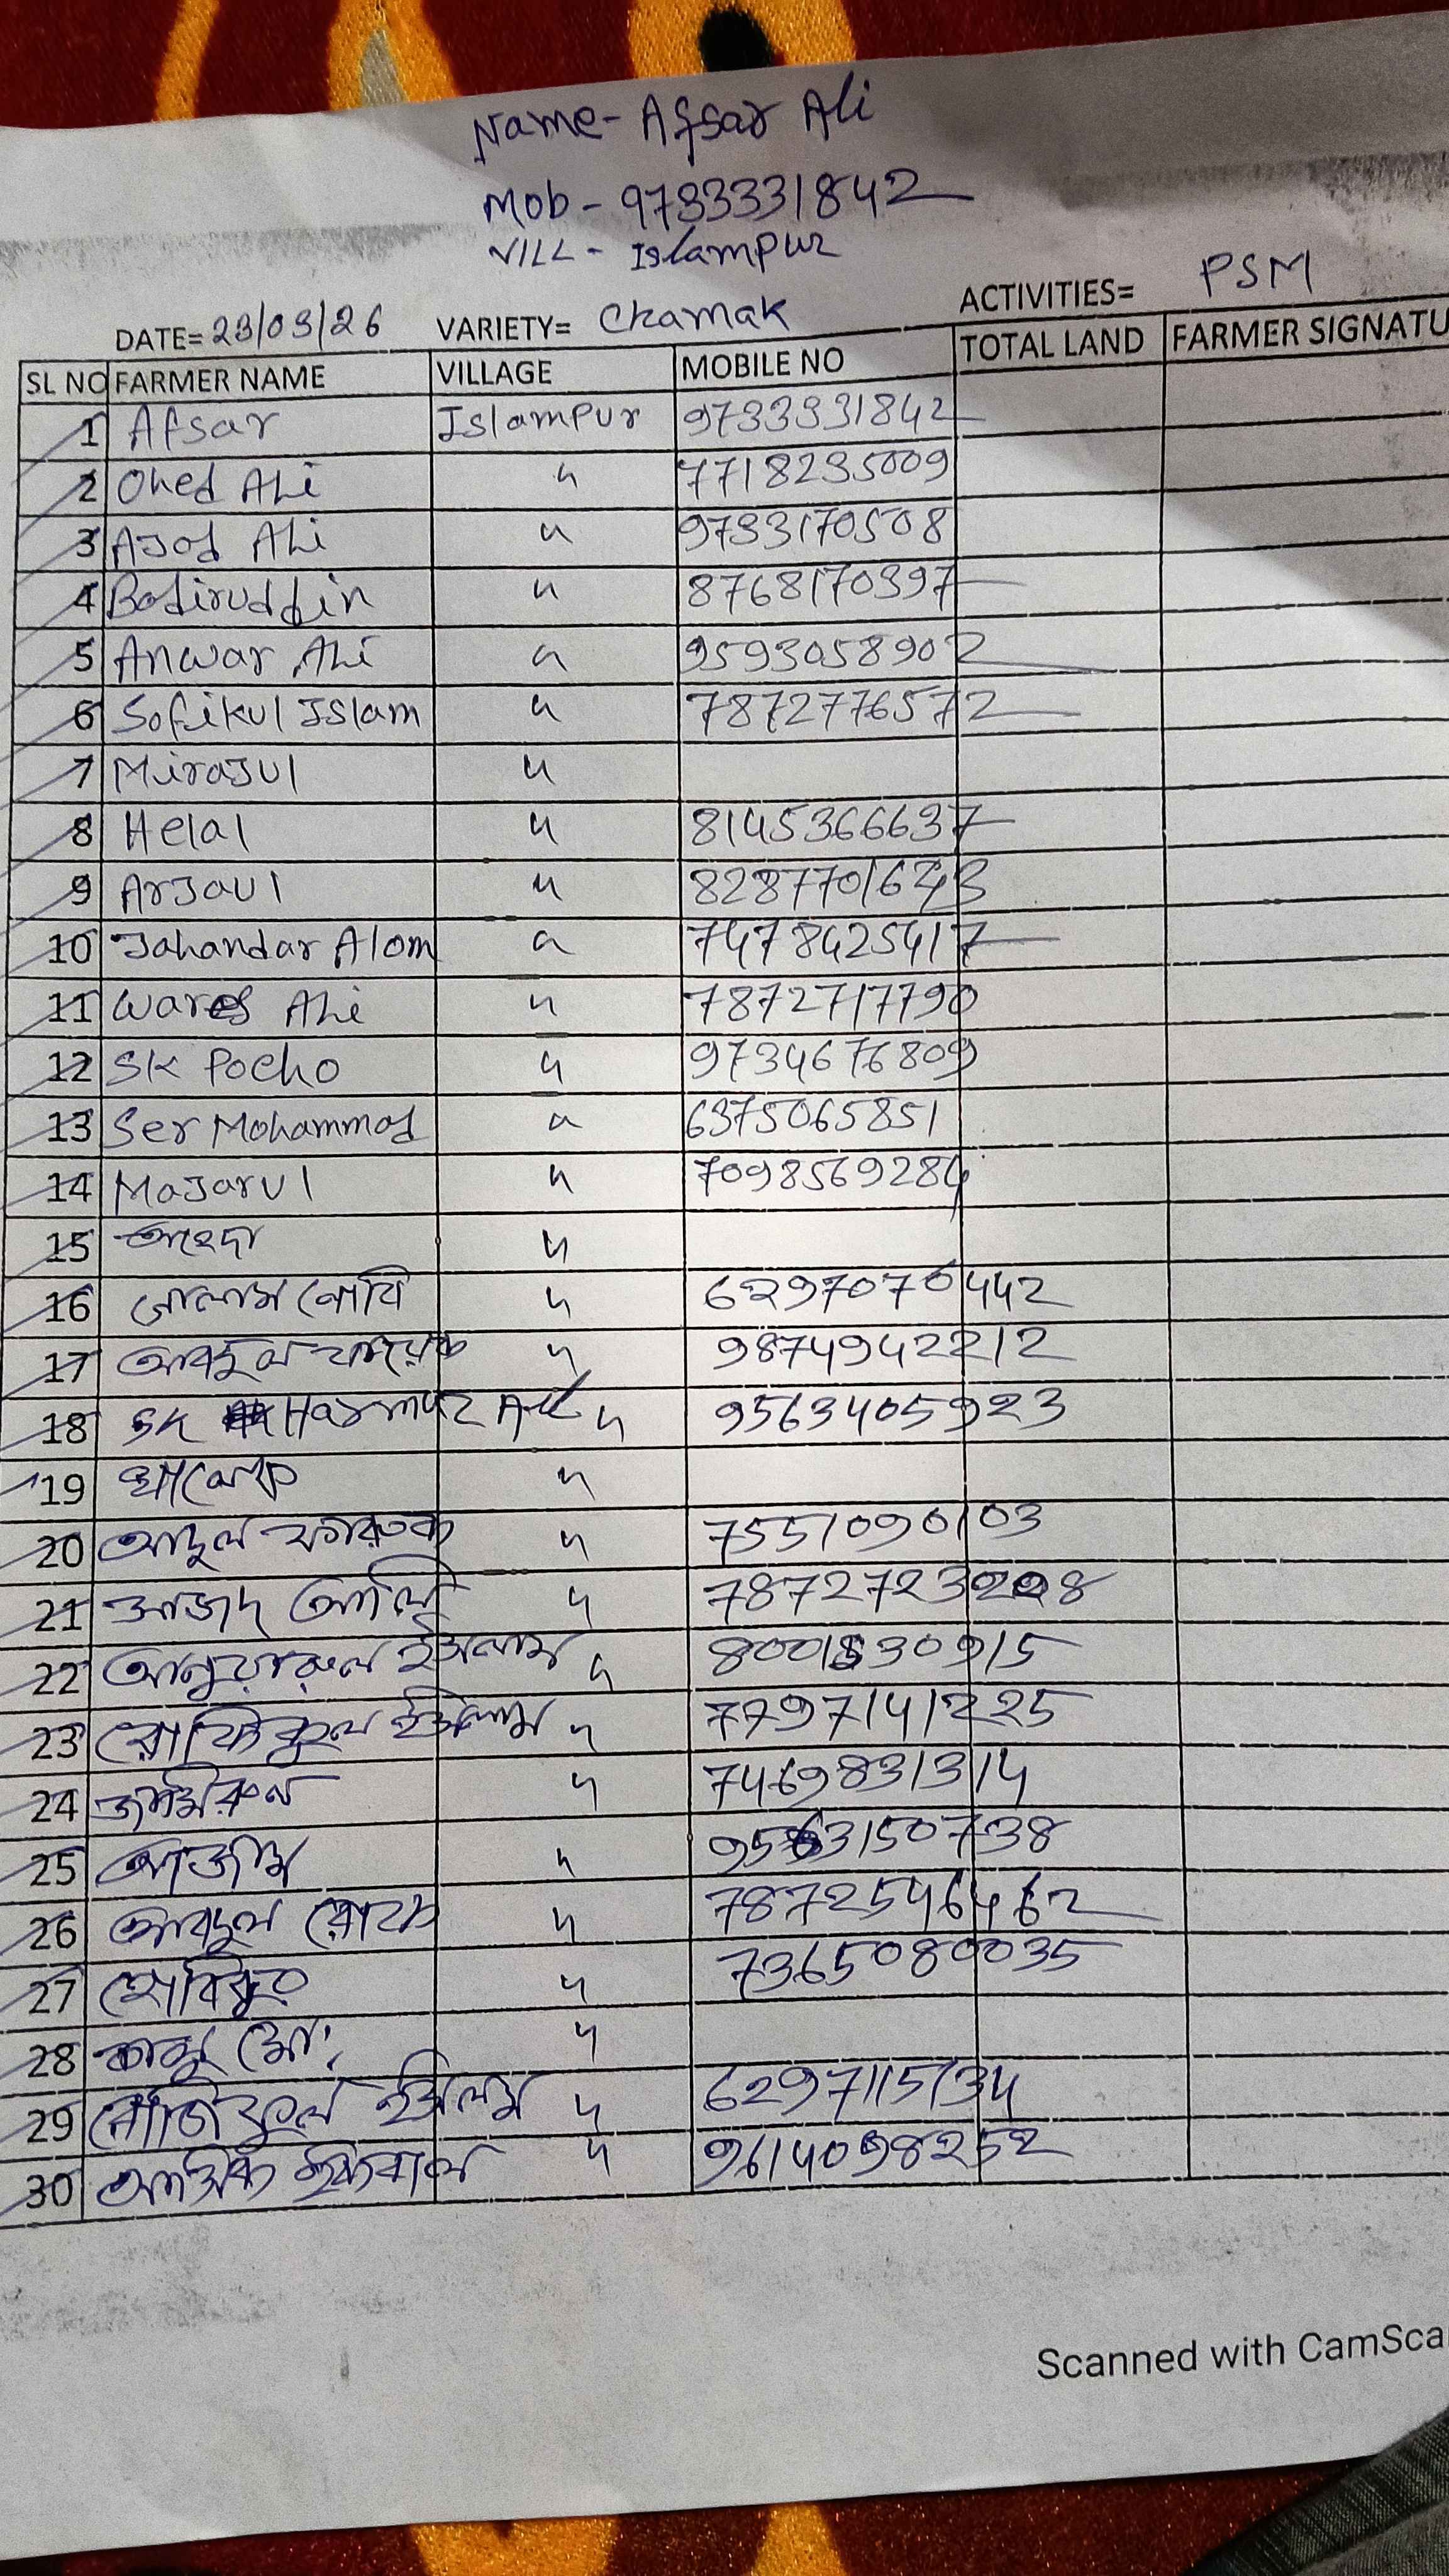 Name- Afsar Ali
Mob - 9733331842
VILL - Islampur
DATE= 23/03/26 VARIETY= Chamak ACTIVITIES= PSM
SL NO FARMER NAME VILLAGE MOBILE NO TOTAL LAND FARMER SIGNATU
1 Afsar Islampur 9733331842
2 Ohed Ali " 7718235009
3 AJod Ali " 9733170508
4 Bodiruddin " 8768170397
5 Anwar Ali " 9593058902
6 Sofikul ISlam " 7872776572
7 MiraJul "
8 Helal " 8145366637
9 ArJaul " 8287701643
10 Jahandar Alom " 7478425417
11 Wares Ali " 7872717790
12 SK Pocho " 9734676809
13 Ser Mohammod " 6375065851
14 MaJarul " 7098569284
15 "
16 গোলাম নোবি " 6297070442
17 আবদুল " 9874942212
18 SK Harmuz Ali " 9563405923
19 "
20 আদুল " 7551090103
21 আজাদ আলি " 7872723228
22 আনুয়ারুল ইসলাম " 8001530915
23 রোফিকুল ইসলাম " 7797141225
24 " 7469831314
25 আজাম " 9563150738
26 আবদুল " 7872546462
27 " 7365080035
28 কালু মো: "
29 ইসলাম " 6297115734
30 আসিক ইকবাল " 9614098252
Scanned with CamSca